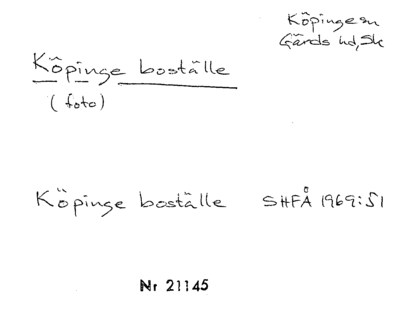 Köpinge sn
Gärds hd, Sk
Köpinge boställe
(foto)
Köpinge boställe SHFÅ 1969:51
Nr 21145